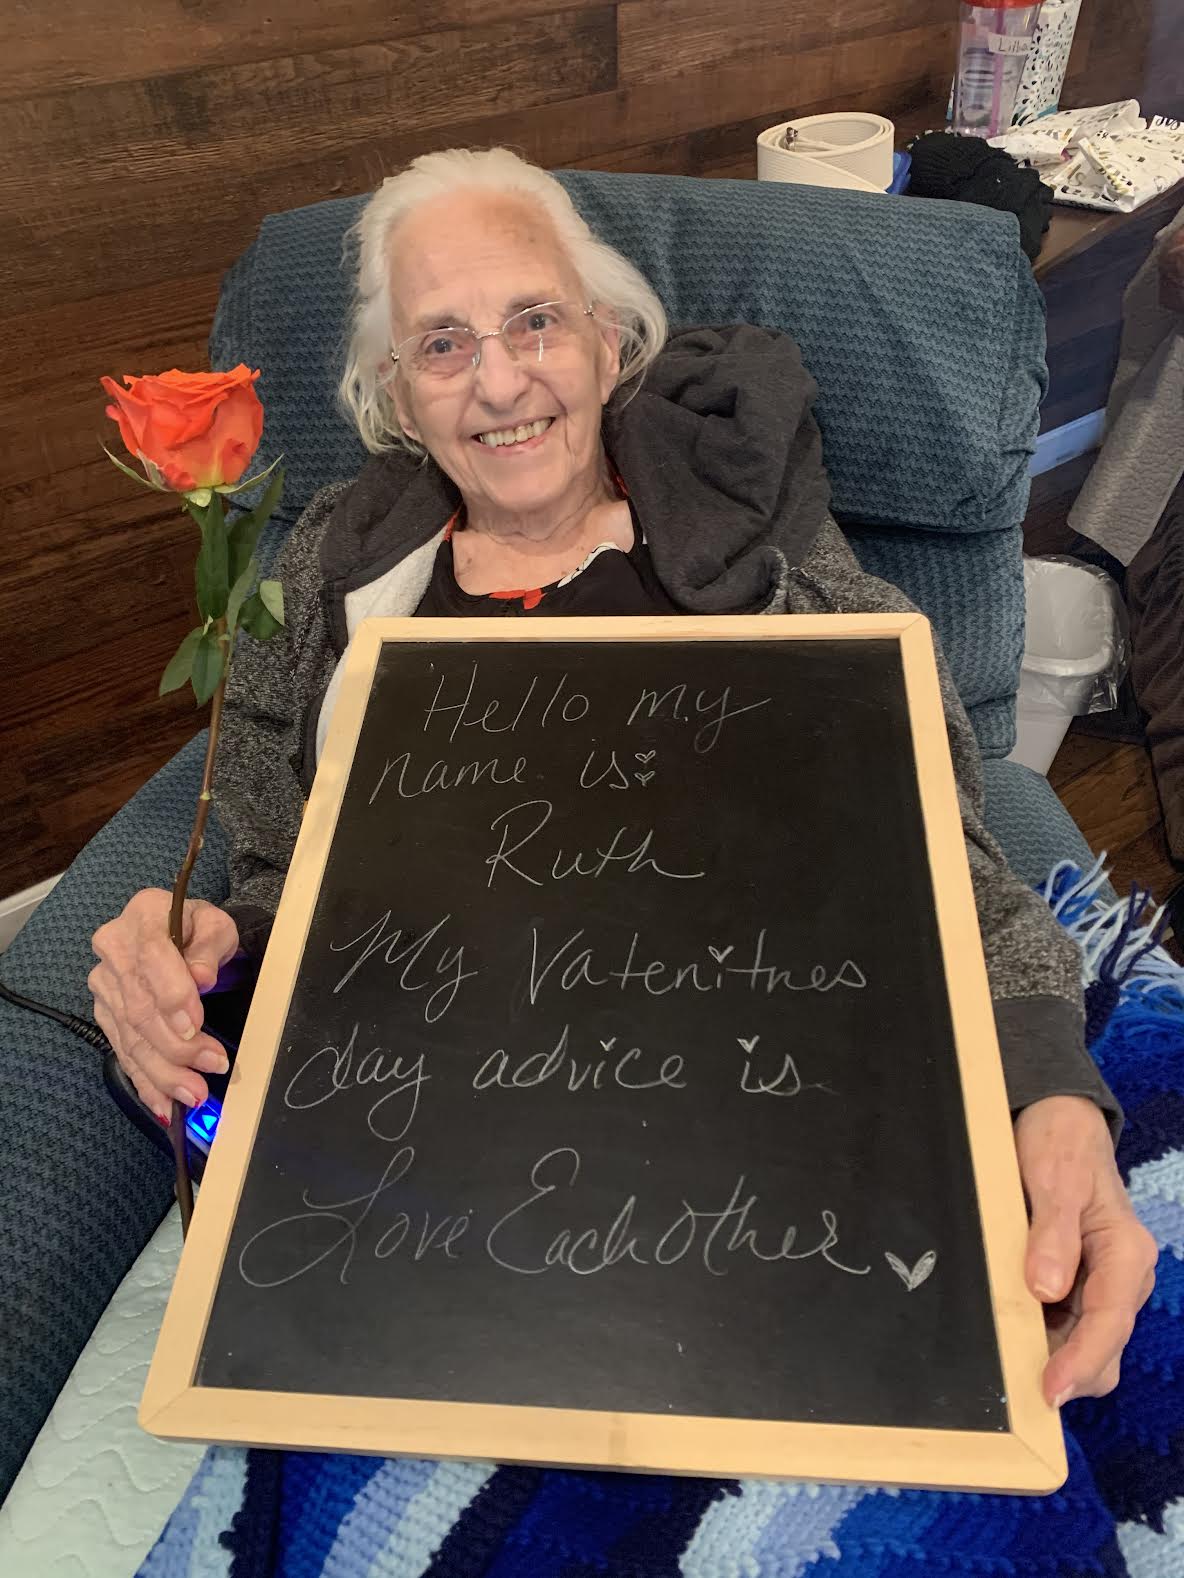 Lillia
Hello my
name is:
Ruth
My Vatenitnes
day advice is
Love Each other